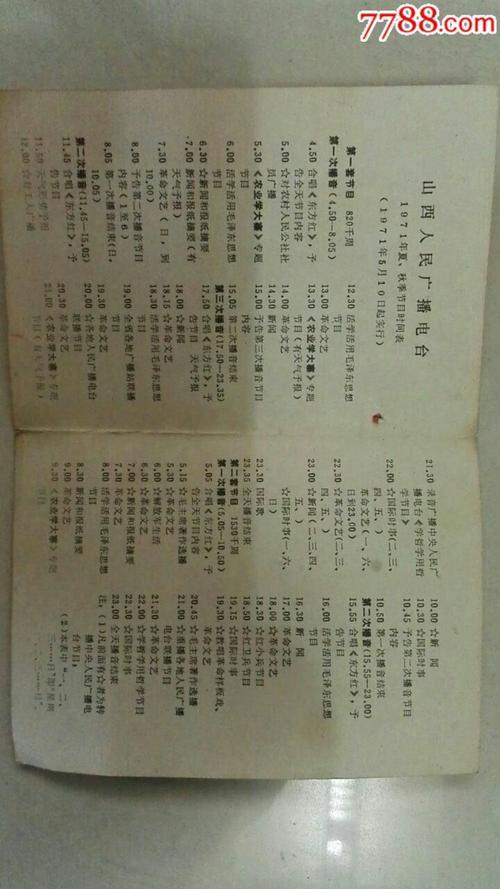 7788.com
山西人民广播电台
1971年夏、秋季节目时间表
(1971年5月10日起实行)
第一套节目 820千周
第一次播音(4.50—8.05)
4.50 合唱《东方红》,予
告全天节目内容
5.00 ☆对农村人民公社社
员广播
5.30 《农业学大寨》专题
节目
6.00 活学活用毛泽东思想
6.30 ☆新闻和报纸摘要
7.00 新闻和报纸摘要(有
天气予报)
7.30 革命文艺(日,到
10.00)
8.00 予告第二次播音节目
内容(1至6)
8.05 第一次播音结束(日,
10.05)
第二次播音(11.45—15.05)
11.45 合唱《东方红》,予
告节目
12.00 ☆对工人广播
12.30 活学活用毛泽东思想
13.00 革命文艺
《农业学大寨》专题
节目(有天气予报)
14.00 革命文艺
14.30 新闻
15.00 予告第三次播音节目
15.05 第二次播音结束
第三次播音(17.50—23.35)
17.50 合唱《东方红》,予
告节目 天气予报
18.00 ☆新闻
18.15 ☆革命文艺
18.30 活学活用毛泽东思想
节目
19.00 全省各地广播站联播
19.30 革命文艺
20.00 ☆各地人民广播电台
联播节目
20.30 革命文艺
21.00 《农业学大寨》专题
节目(有天气予报)
21.30 录音广播中央人民广
播电台《学哲学用哲
学节目》
22.00 ☆国际时事(二、三、
四、五)
革命文艺(一、六、
日到23.00)
22.30 ☆革命文艺(二、三、
四、五)
23.00 ☆新闻(二、三、四、
五、)
☆国际时事(一、六、
日)
23.30 国际歌
23.35 全天播音结束
第二套节目 1530千周
第一次播音(5.05—10.50)
5.05 合唱《东方红》,予
告全天节目内容
5.15 ☆毛主席著作选播
5.30 ☆革命文艺
6.00 ☆解放军生活
6.30 ☆革命文艺
7.00 ☆新闻和报纸摘要
7.30 革命文艺
8.00 活学活用毛泽东思想
节目
8.30 新闻和报纸摘要
9.00 革命文艺
9.30 《农业学大寨》专题
10.00 ☆新闻
10.30 ☆国际时事
10.45 予告第二次播音节目
内容
10.50 第一次播音结束
第二次播音(15.55—23.00)
15.55 合唱《东方红》,予
告节目
16.00 活学活用毛泽东思想
节目
16.30 新闻
17.00 革命文艺
18.00 ☆革命文艺
18.30 ☆红小兵节目
18.50 ☆红卫兵节目
19.15 ☆国际时事
19.30 ☆教唱革命样板戏、
革命文艺
20.45 ☆毛主席著作选播
21.00 ☆重播各地人民广播
电台联播节目
21.30 ☆革命文艺
22.00 ☆学哲学用哲学节目
22.30 ☆国际时事
23.00 全天播音结束
注:(1)凡前面有☆者为转
播中央人民广播电
台节目。
(2)表中“一、二、
三……日”即“星期
一、二、三……日”。